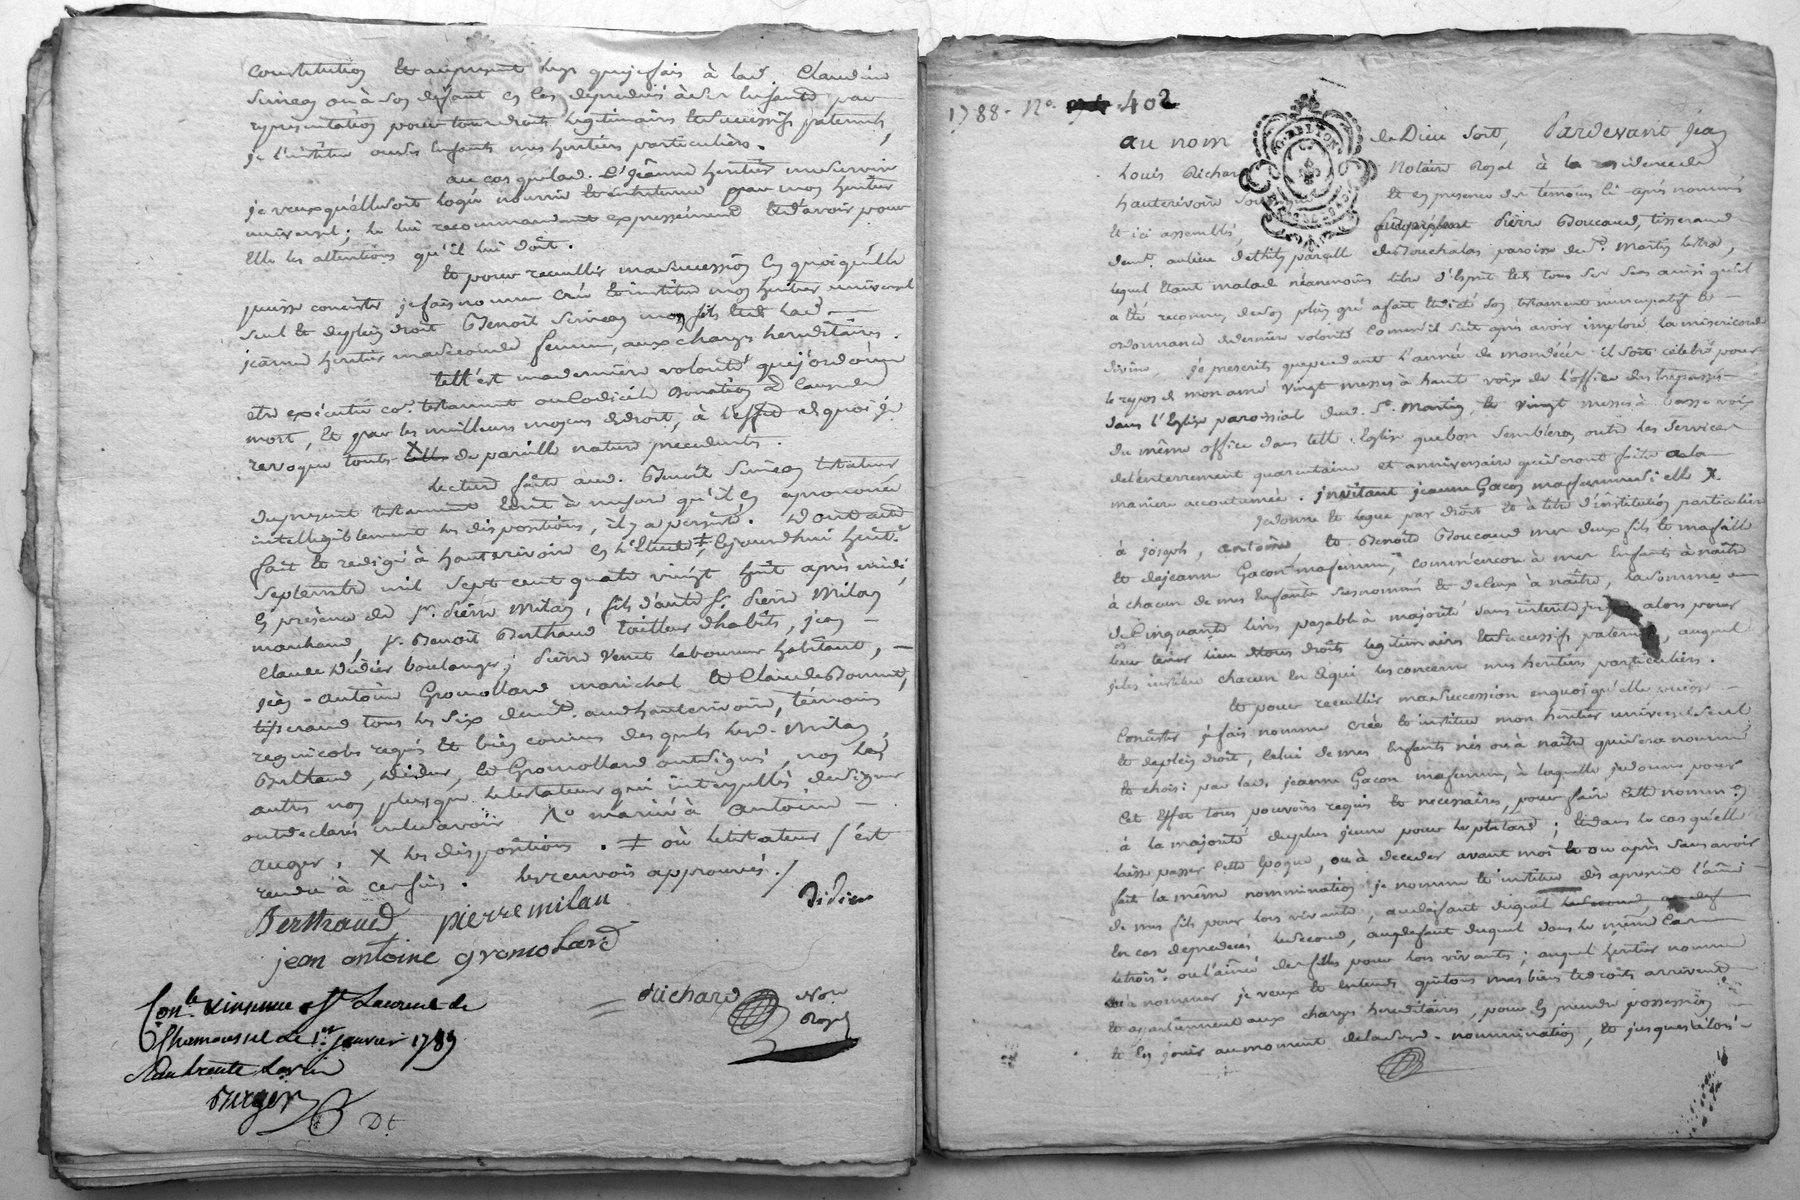 constitution et augment legs que je fais à lad. Claudine
Simeon ou à son défaut en cas de prédécès à ses enfants par
représentation pour tous droits legitimaires et successifs paternels,
je l'institue ou ses enfants mes heritiers particuliers.
au cas que lad. Jeanne heritier me survive
je veux qu'elle soit logée nourrie et entretenue par mon heritier
universel; je lui recommandant expressément d'avoir pour
Elle les attentions qu'il lui doit.
Et pour recueillir ma succession en quoi qu'elle
puisse concister je fais nomme crée et institue mon heritier universel
seul et de plein droit Benoît Simeon mon fils et de lad.
jeanne heritier ma seconde femme, aux charges hereditaires.
telle est ma derniere volonté que j'ordonne
etre executée coe. testament ou codicile Donation à cause de
mort, et par les meilleurs moyens de droit, à l'effet de quoi je
revoque touts X de pareille nature précedents.
Lecture faite aud. Benoît Simeon testateur
du present testament écrit à mesure qu'il en a prononcé
intelligiblement les dispositions, il y a persisté. Dont acte
fait et redigé à hauterivoire en l'Etude ‡, cejourdhui huit
septembre mil sept cent quatre vingt huit après midi,
En présence de sr. Pierre Milan, fils d'autre sr. Pierre Milan
marchand, sr. Benoît Berthaud tailleur d'habits, jean
Claude Didier boulanger, Pierre Venet laboureur habitant,
jean-antoine Gromollard maréchal et Claude Bonnet,
tisserand tous les six demt. aud. hauterivoire, témoins
regnicoles requis et bien connus desquels lesd. Milan,
Berthaud, Didier, et Gromollard ont signé, non les
autres non plus que le testateur qui interpellés de signer
ont declaré ne le savoir. No mariée à antoine
auger. X les dispositions. ‡ où le testateur s'est
rendu à ces fins. les renvois approuvés./
Berthaud pierre milan Didier
jean antoine gromolard
Richard Nore
Royal
Conlé. &insinué à St Laurent de
Chamousset le 1er janvier 1789
Berger
Dt
1788. No. 402
au nom de Dieu soit, Pardevant jean
Louis Richard Notaire Royal à la résidence de
hauterivoire et en presence des temoins ci-après nommés
et ici assemblés, Pierre Boucaud, tisserand
demt. au lieu de paroisse de St. Martin Lestra,
lequel étant malade néanmoins libre d'Esprit et de tous ses sens ainsi qu'il
a été reconnu, de son plein gré a fait et dicté son testament nuncupatif et
ordonnance de derniere volonté comme il suit après avoir imploré la misericorde
divine. je prescrits que pendant l'année de mon décès il soit célébré pour
le repos de mon ame vingt messes à haute voix de l'office des trépassés
dans l'Eglise paroissial dud. St. Martin, et vingt messes à basse voix
du même office dans telle Eglise que bon semblera outre les services
de l'enterrement quarantaine et anniversaire qui seront faits à la
maniere accoutumée. invitant jeanne Gacon ma femme si elle X
je donne et legue par droit et à titre d'institution particuliere
à joseph, antoine, et Benoît Boucaud mes deux fils et ma fille
et de jeanne Gacon ma femme, comme encor à mes Enfants à naître
à chacun de mes Enfants susnommés et de ceux à naître, la somme
de Cinquante livres payable à majorité sans interet jusqu'alors pour
leur tenir lieu de tous droits legitimaires et successifs paternels, auquel
je les institue chacun en ce qui les concerne mes heritiers particuliers.
Et pour recueillir ma succession en quoi qu'elle puisse
concister je fais nomme crée et institue mon heritier universel seul
et de plein droit, celui de mes Enfants nés ou à naître qui sera nommé
et choisi par lad. jeanne Gacon ma femme, à laquelle je donne pour
cet effet tous pouvoirs requis et necessaires, pour faire cette nommon
à la majorité du plus jeune pour le plutard; et dans le cas qu'elle
laisse passer cette époque, ou à deceder avant moi ou après sans avoir
fait la même nommination je nomme et institue dès à present l'ainé
de mes fils pour lors vivants, au defaut duquel
en cas de predecès le second, au defaut duquel dans le même cas
le trois.e ou l'ainée des filles pour lors vivantes; auquel heritier nommé
ou à nommer je veux et entends que tous mes biens et droits arrivent
et appartiennent aux charges hereditaires, pour en prendre possession
et en jouir au moment de la susd. nommination, et jusques à lors